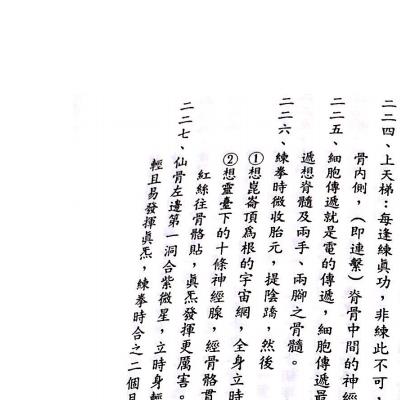 二二四、上天梯：每逢練眞功，非練此不可，
骨內側，（即連繫）脊骨中間的神經
二二五、細胞傳遞就是電的傳遞，細胞傳遞最
遞想脊髓及兩手、兩腳之骨髓。
二二六、練拳時微收胎元，提陰蹻，然後
①想崑崙頂爲根的宇宙網，全身立時
②想靈臺下的十條神經腺，經骨骼貫
紅絲往骨骼貼，眞炁發揮更厲害。
二二七、仙骨左邊第一洞合紫微星，立時身輕
輕且易發揮眞炁，練拳時合之二個月